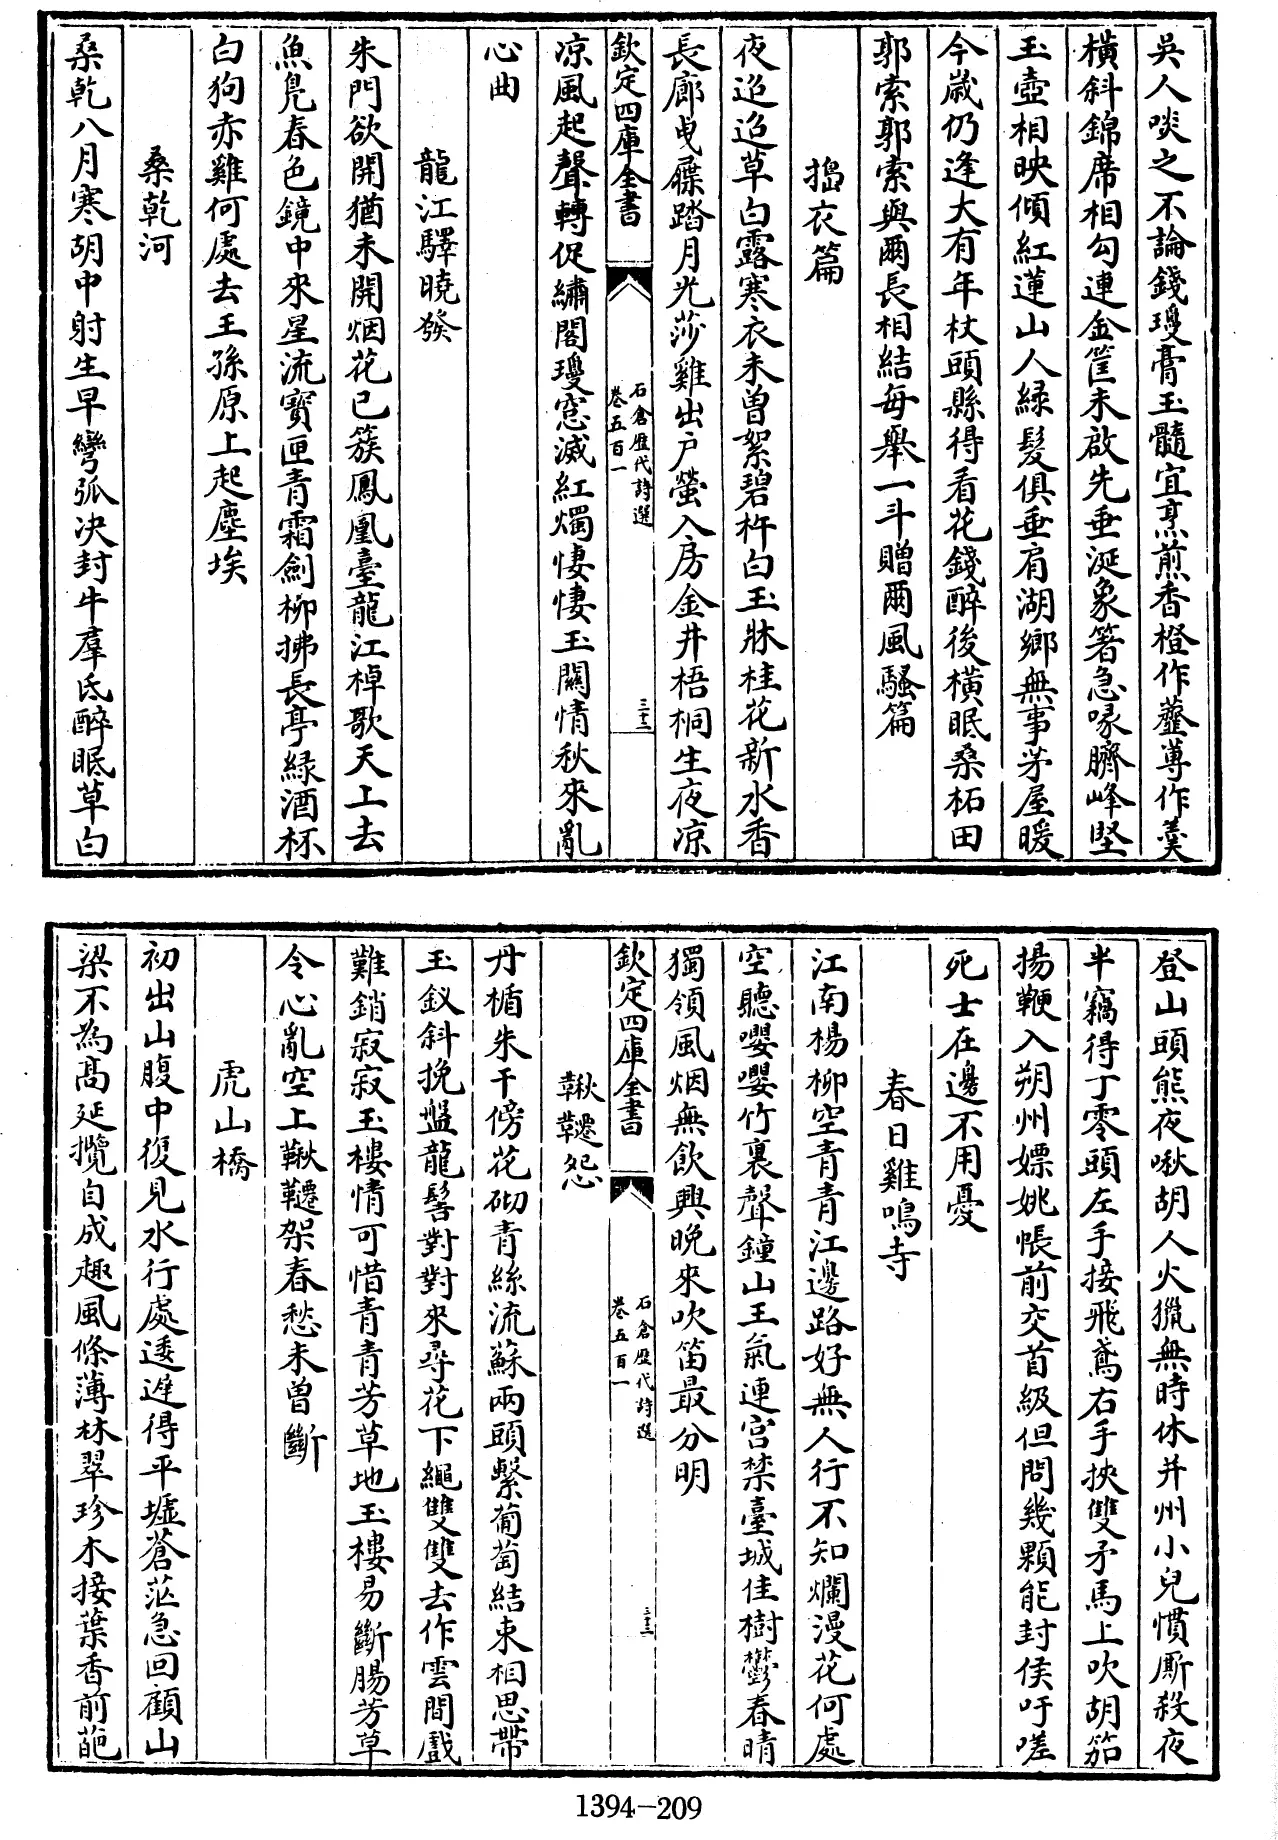 吳人啖之不論錢瓊膏玉髓宜烹煎香橙作虀蓴作羮
橫斜錦席相勾連金筐未啟先垂涎象箸急喙臍峰堅
玉壺相映傾紅蓮山人緑髮俱垂肩湖鄉無事茅屋暖
今歲仍逢大有年杖頭縣得看花錢醉後橫眠桑柘田
郭索郭索與爾長相結每舉一斗贈爾風騷篇
搗衣篇
夜迢迢草白露寒衣未曾絮碧杵白玉牀桂花新水香
長廊曵屧踏月光莎雞出户螢入房金井梧桐生夜凉
欽定四庫全書
石倉歴代詩選
卷五百一
三十二
凉風起聲轉促繡閣瓊窓滅紅燭悽悽玉關情秋來亂
心曲
龍江驛曉發
朱門欲開猶未開烟花已簇鳳凰臺龍江棹歌天上去
魚鳧春色鏡中來星流寳匣青霜劍柳拂長亭緑酒杯
白狗赤雞何處去王孫原上起塵埃
桑乾河
桑乾八月寒胡中射生早彎弧决封牛羣氐醉眠草白
登山頭熊夜啾胡人火獵無時休并州小兒慣厮殺夜
半竊得丁零頭左手接飛鳶右手挾雙矛馬上吹胡笳
揚鞭入朔州嫖姚帳前交首級但問幾顆能封侯吁嗟
死士在邊不用憂
春日雞鳴寺
江南楊柳空青青江邊路好無人行不知爛漫花何處
空聽嚶嚶竹裏聲鐘山王氣連宫禁臺城佳樹鬱春晴
獨領風烟無飲興晚來吹笛最分明
欽定四庫全書
石倉歴代詩選
卷五百一
三十三
鞦韆怨
丹楯朱干傍花砌青絲流蘇兩頭繫葡萄結束相思帶
玉釵斜挽盤龍髻對對來尋花下繩雙雙去作雲間戲
難銷寂寂玉樓情可惜青青芳草地玉樓易斷腸芳草
令心亂空上鞦韆架春愁未曾斷
虎山橋
初出山腹中復見水行處逶遲得平墟蒼茫急回顧山
梁不為高延攬自成趣風條薄林翠珍木接葉香前葩
1394-209